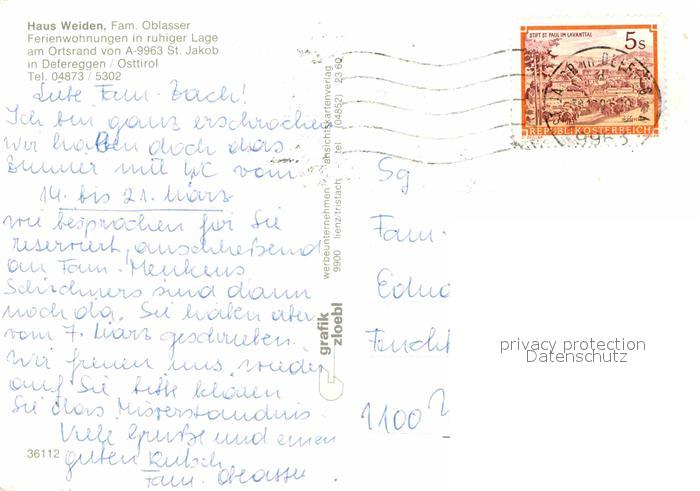 Haus Weiden, Fam. Oblasser
Ferienwohnungen in ruhiger Lage
am Ortsrand von A-9963 St. Jakob
in Defereggen / Osttirol
Tel. 04873 / 5302
Liebe Fam. Zach!
Ich bin ganz erschrocken
wir haben doch das
Zimmer mit WC vom
14. bis 21. März
wie besprochen für Sie
reserviert, anschließend
an Fam. Menkens
Schirmers sind dann
noch da. Sie haben aber
vom 7. März geschrieben.
Wir freuen uns wieder
auf Sie bitte klären
Sie das Misverständnis.
Viele Grüße und einen
guten Rutsch
Fam. Oblasser
36112
werbeunternehmen ansichtskartenverlag
9900 lienz/tristach tel. (04852) 23 60
grafik
zloebl
STIFT ST. PAUL IM LAVANTTAL
5s
REPUBLIK ÖSTERREICH
9963
Sg
Fam.
1100
privacy protection
Datenschutz